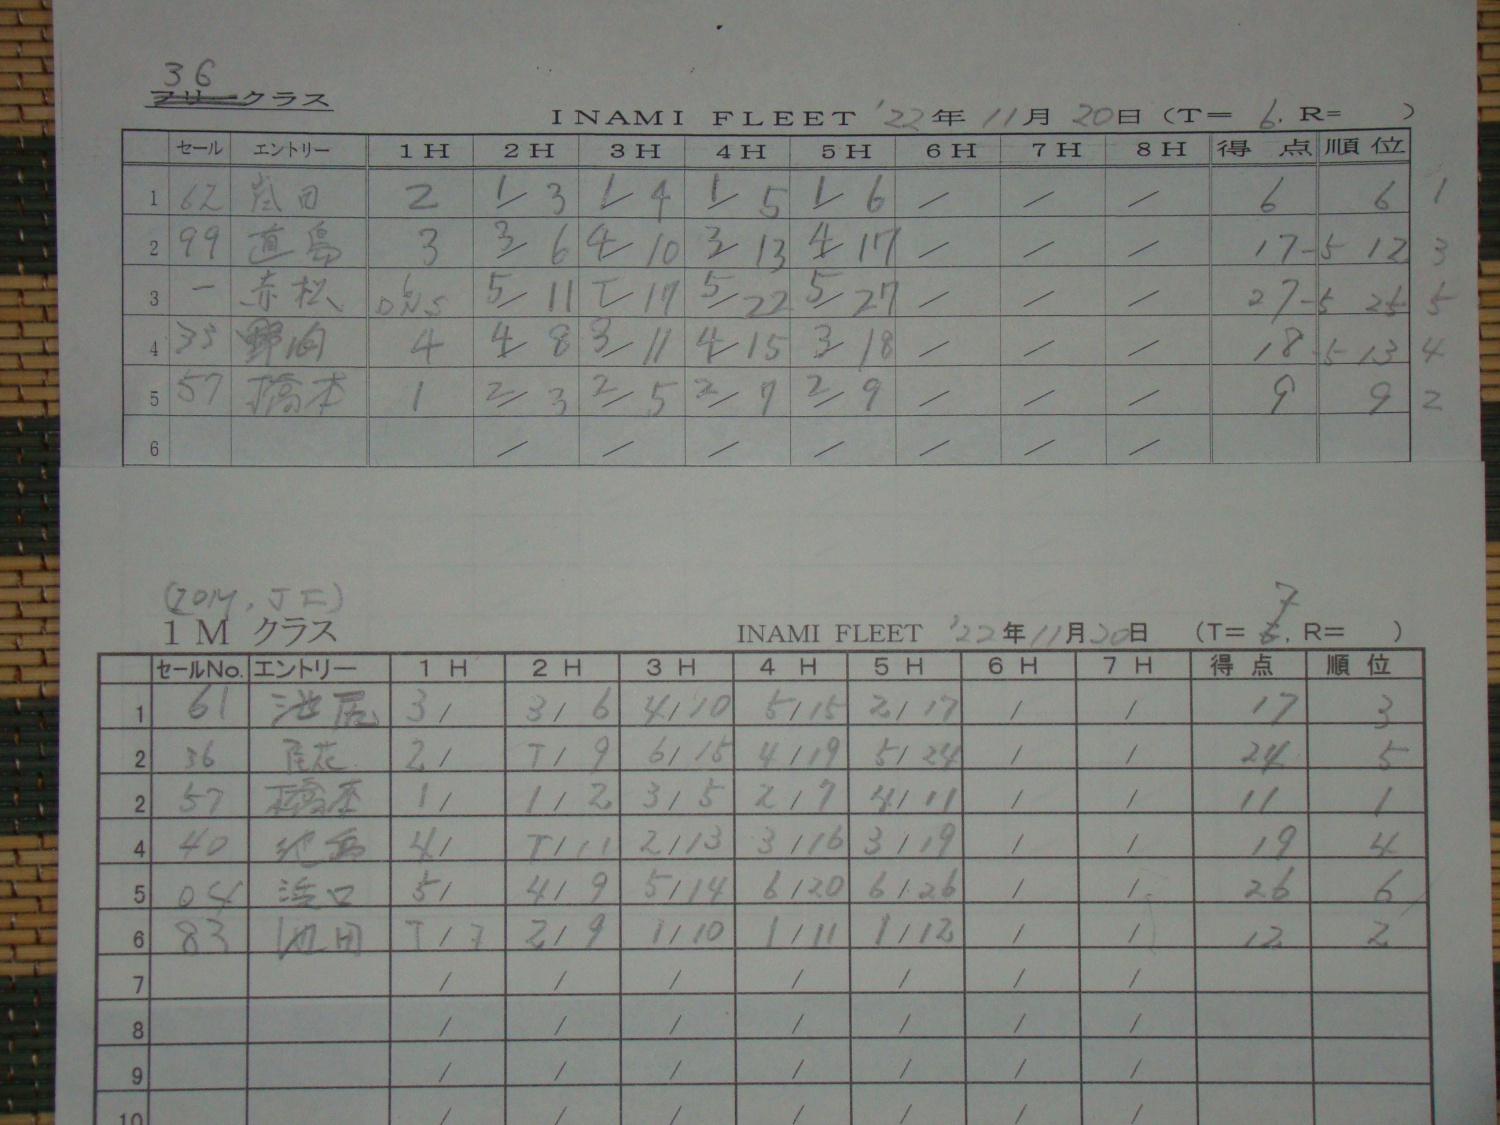 36
フリークラス
INAMI FLEET '22年 11月 20日 (T= 6, R= )
セール エントリー 1H 2H 3H 4H 5H 6H 7H 8H 得点 順位
1 62 田 2 1/3 1/4 1/5 1/6 / / / 6 6 1
2 99 直島 3 3/6 4/10 3/13 4/17 / / / 17-5 12 3
3 - 赤松 6 DNS 5/11 T/17 5/22 5/27 / / / 27-5 25 5
4 35 野向 4 4/8 3/11 4/15 3/18 / / / 18-5 13 4
5 57 橋本 1 2/3 2/5 2/7 2/9 / / / 9 9 2
6 / / / / / / /
(ZOM, JF)
1M クラス
INAMI FLEET '22年 11月 20日 (T= 7, R= )
セールNo. エントリー 1H 2H 3H 4H 5H 6H 7H 得点 順位
1 61 池尻 3/ 3/6 4/10 5/15 2/17 / / 17 3
2 36 尾花 2/ T/9 6/15 4/19 5/24 / / 24 5
2 57 橋本 1/ 1/2 3/5 2/7 4/11 / / 11 1
4 40 4/ T/11 2/13 3/16 3/19 / / 19 4
5 04 浜口 5/ 4/9 5/14 6/20 6/26 / / 26 6
6 83 池田 T/7 2/9 1/10 1/11 1/12 / / 12 2
7 / / / / / / /
8 / / / / / / /
9 / / / / / / /
10 / / / / / / /